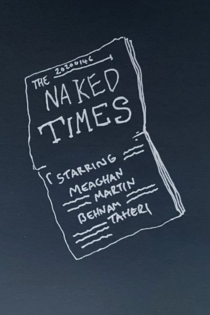 20200146
THE
NAKED
TIMES
STARRING
MEAGHAN
MARTIN
BEHNAM
TAHERI